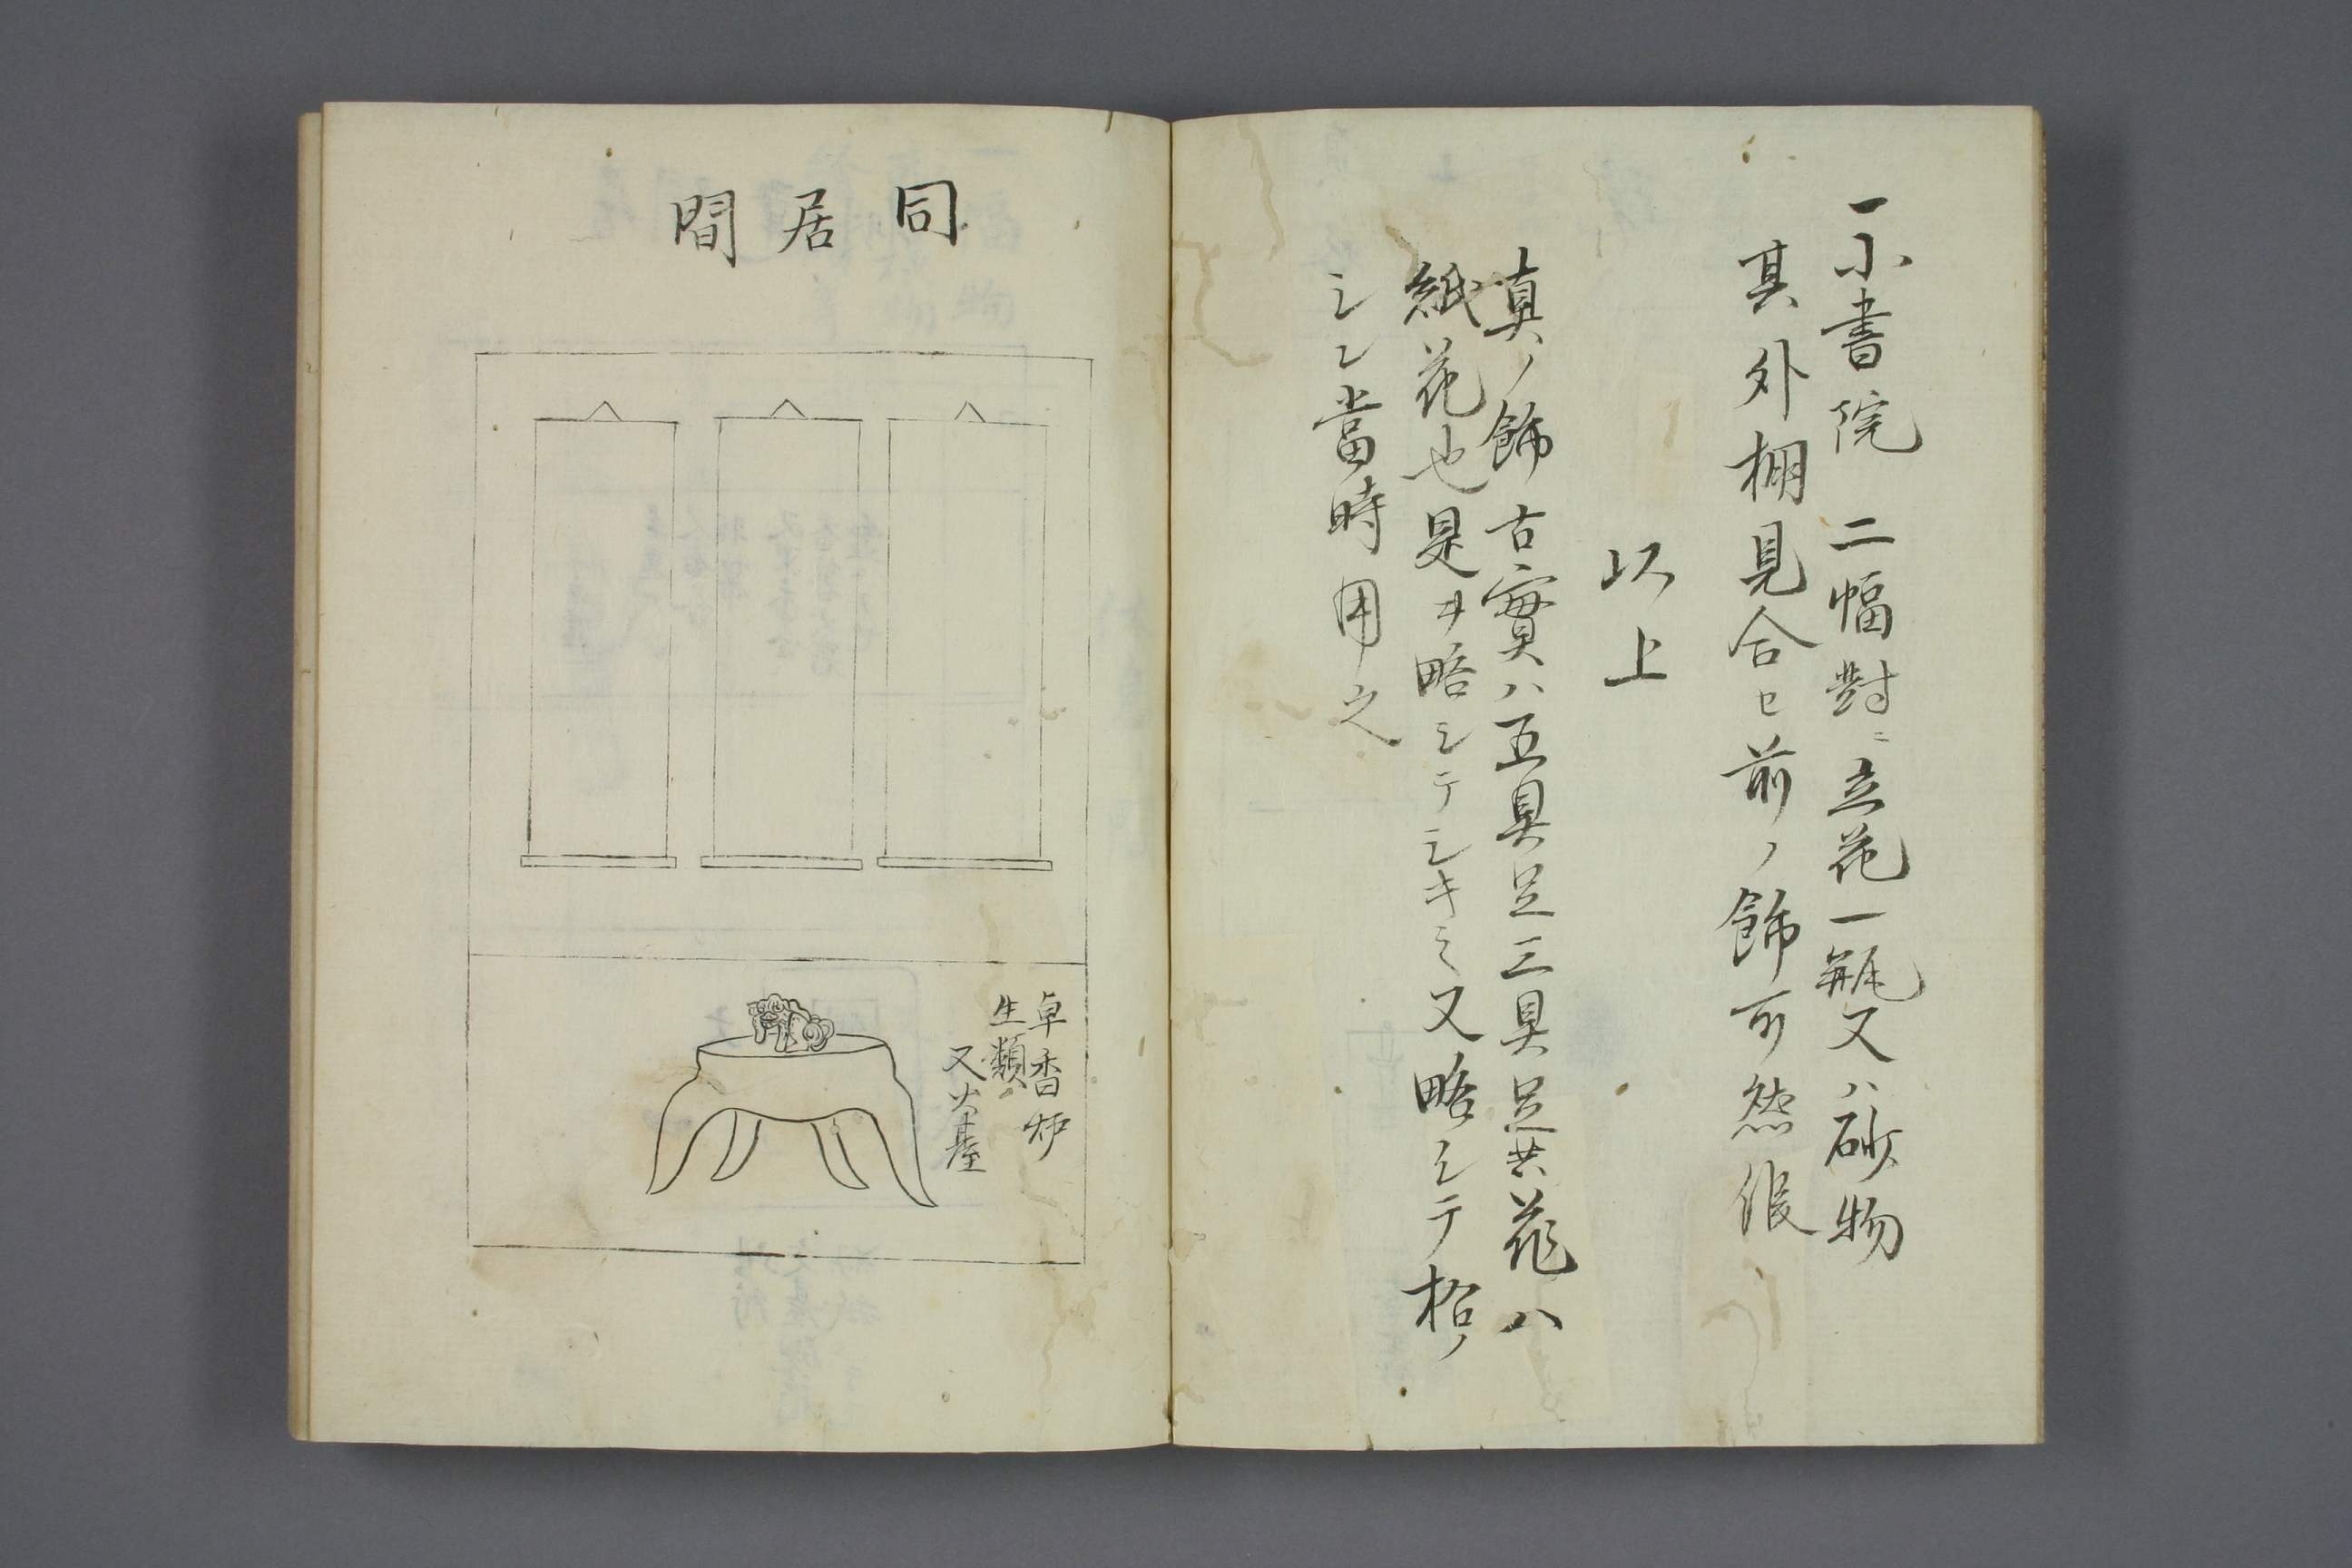 一小書院 二幅對ニ立花一瓶又ハ砂物
其外棚見合セ前ノ飾可然候
以上
真ノ飾古實ハ五具足三具足共花ハ
紙花也是ヲ略シテシキミ又略シテ松ノ
シン當時用之
同居間
卓香炉
生類
又火屋